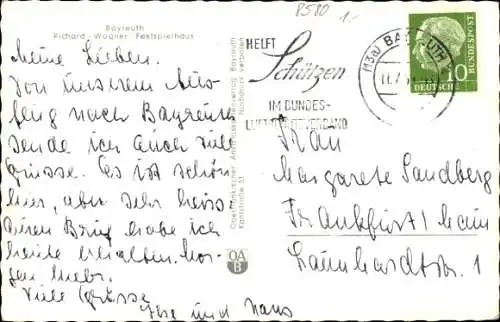 8580 1.-
Bayreuth
Richard-Wagner Festspielhaus
Meine Lieben.
Von unserem Aus-
flug nach Bayreuth
sende ich Euch viele
Grüsse. Es ist schön
hier, aber sehr heiss.
Euren Brief habe ich
heute erhalten. Mor-
gen mehr.
Viele Grüsse
Ilse und Hans
Karlstraße 51
Nachdruck verboten
OA
B
HELFT
Schützen
IM BUNDES-
LUFTSCHUTZVERBAND
(13a) BAYREUTH
10
DEUTSCHE
BUNDESPOST
Frau
Margarete Sandberg
Frankfurt/Main
1